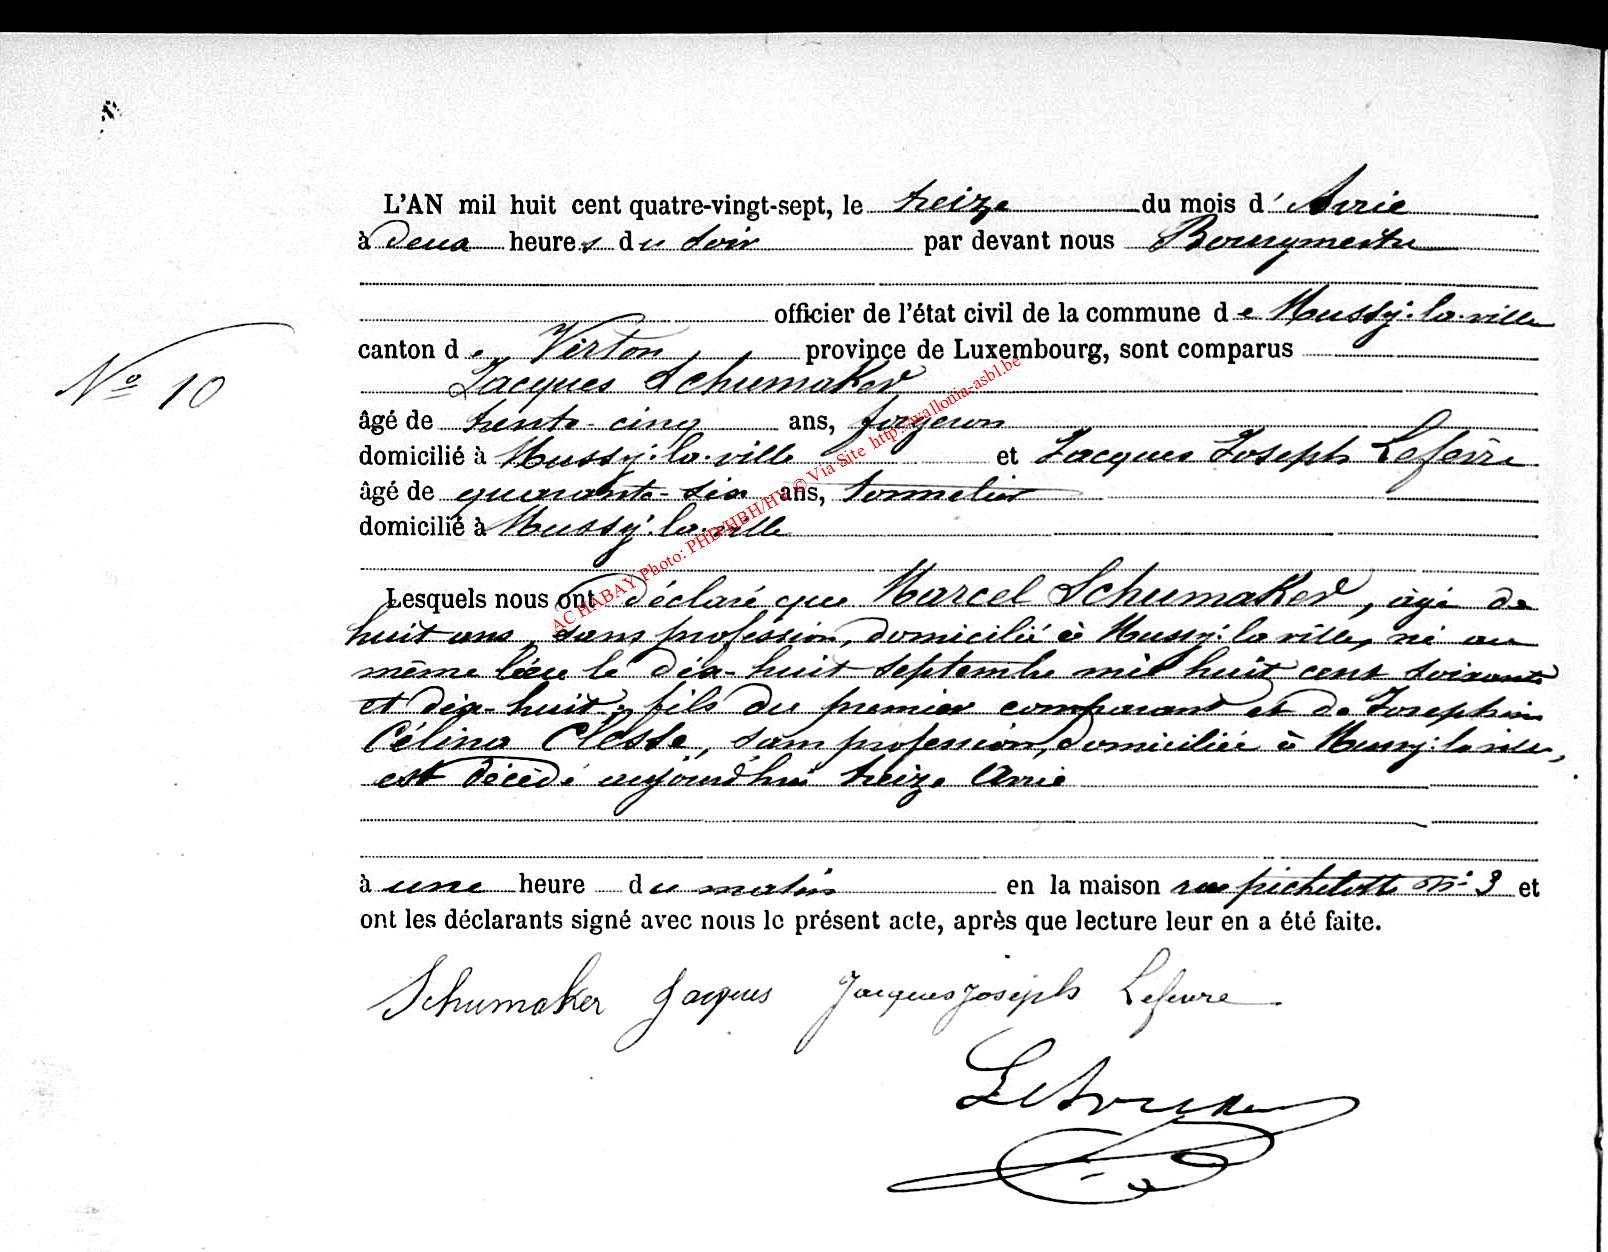 L'AN mil huit cent quatre-vingt-sept, le treize du mois d'Avril
à deux heures du soir par devant nous Bourgmestre
officier de l'état civil de la commune de Mussy-la-ville
canton de Virton, province de Luxembourg, sont comparus
N° 10
Jacques Schumaker
âgé de trente-cinq ans, forgeron
domicilié à Mussy-la-ville et Jacques Joseph Lefèvre
âgé de quarante-six ans, tonnelier
domicilié à Mussy-la-ville
Lesquels nous ont déclaré que Marcel Schumaker, âgé de
huit ans, sans profession, domicilié à Mussy-la ville, né au
même lieu le dix-huit septembre mil huit cent soixante
et dix-huit, fils du premier comparant et de Josephine
Célina Clesse, sans profession, domiciliée à Mussy-la ville,
est décédé aujourd'hui treize Avril
à une heure du matin en la maison rue N° 3 et
ont les déclarants signé avec nous le présent acte, après que lecture leur en a été faite.
Schumaker Jacques Jacques Joseph Lefevre
AC HABAY Photo: PHD/HBH/HY © Via Site http://wallonia-asbl.be